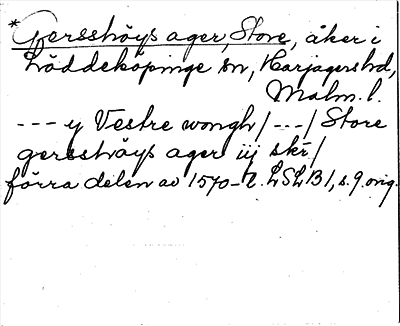 *Gersshöys ager, Store, åker i
Löddeköpinge sn, Harjagers hd,
Malm. l.
--- y Vestre wongh/---/Store
gersshöys ager iij skr/
förra delen av 1570-t. LSLB1, s. 9. orig.